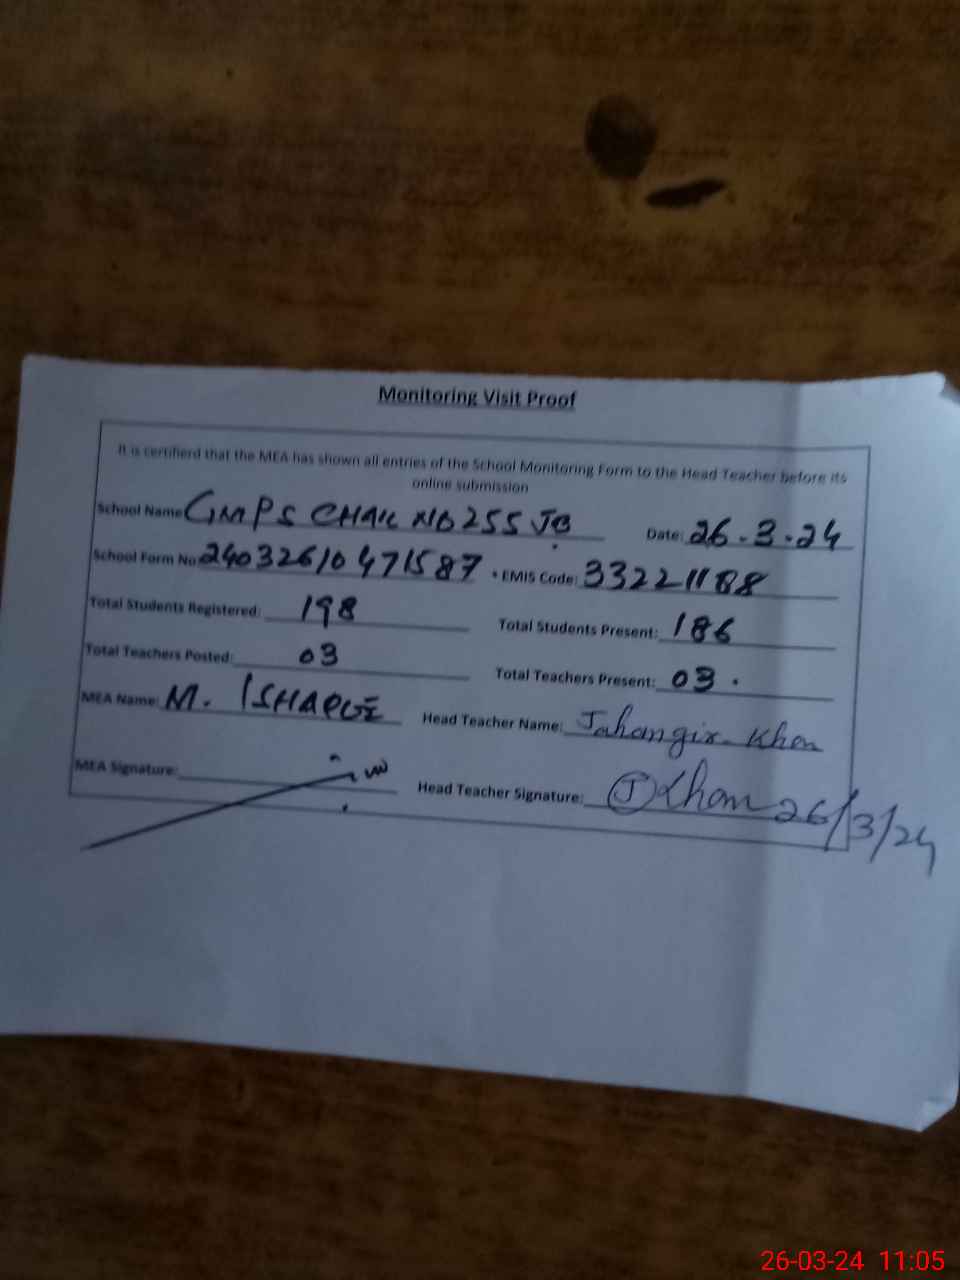 Monitoring Visit Proof
It is certifierd that the MEA has shown all entries of the School Monitoring Form to the Head Teacher before its
online submission
School Name GMPS CHAK NO 255 JB Date: 26.3.24
School Form No 24032610471587 EMIS Code: 33221188
Total Students Registered: 198 Total Students Present: 186
Total Teachers Posted: 03 Total Teachers Present: 03.
MEA Name: M. ISHAQUE Head Teacher Name: Jahangir Khan
MEA Signature: Head Teacher Signature: J Khan 26/3/24
26-03-24 11:05